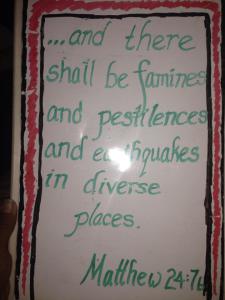 ...and there
shall be famines
and pestilences
and earthquakes
in diverse
places.
Matthew 24:7b